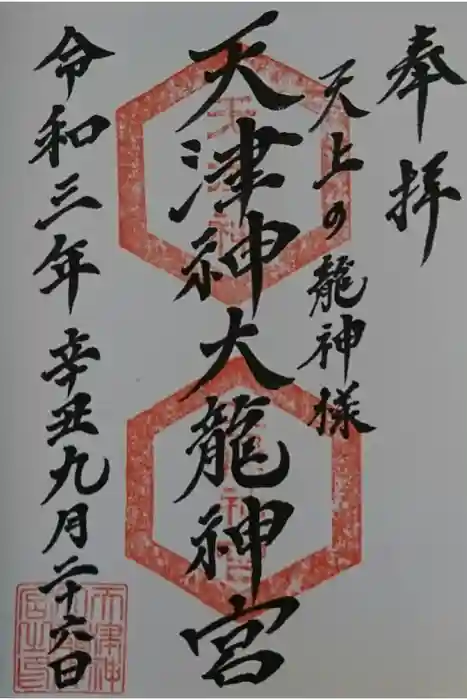 奉拝
天上の龍神様
天津神大龍神宮
令和三年辛丑九月二十六日